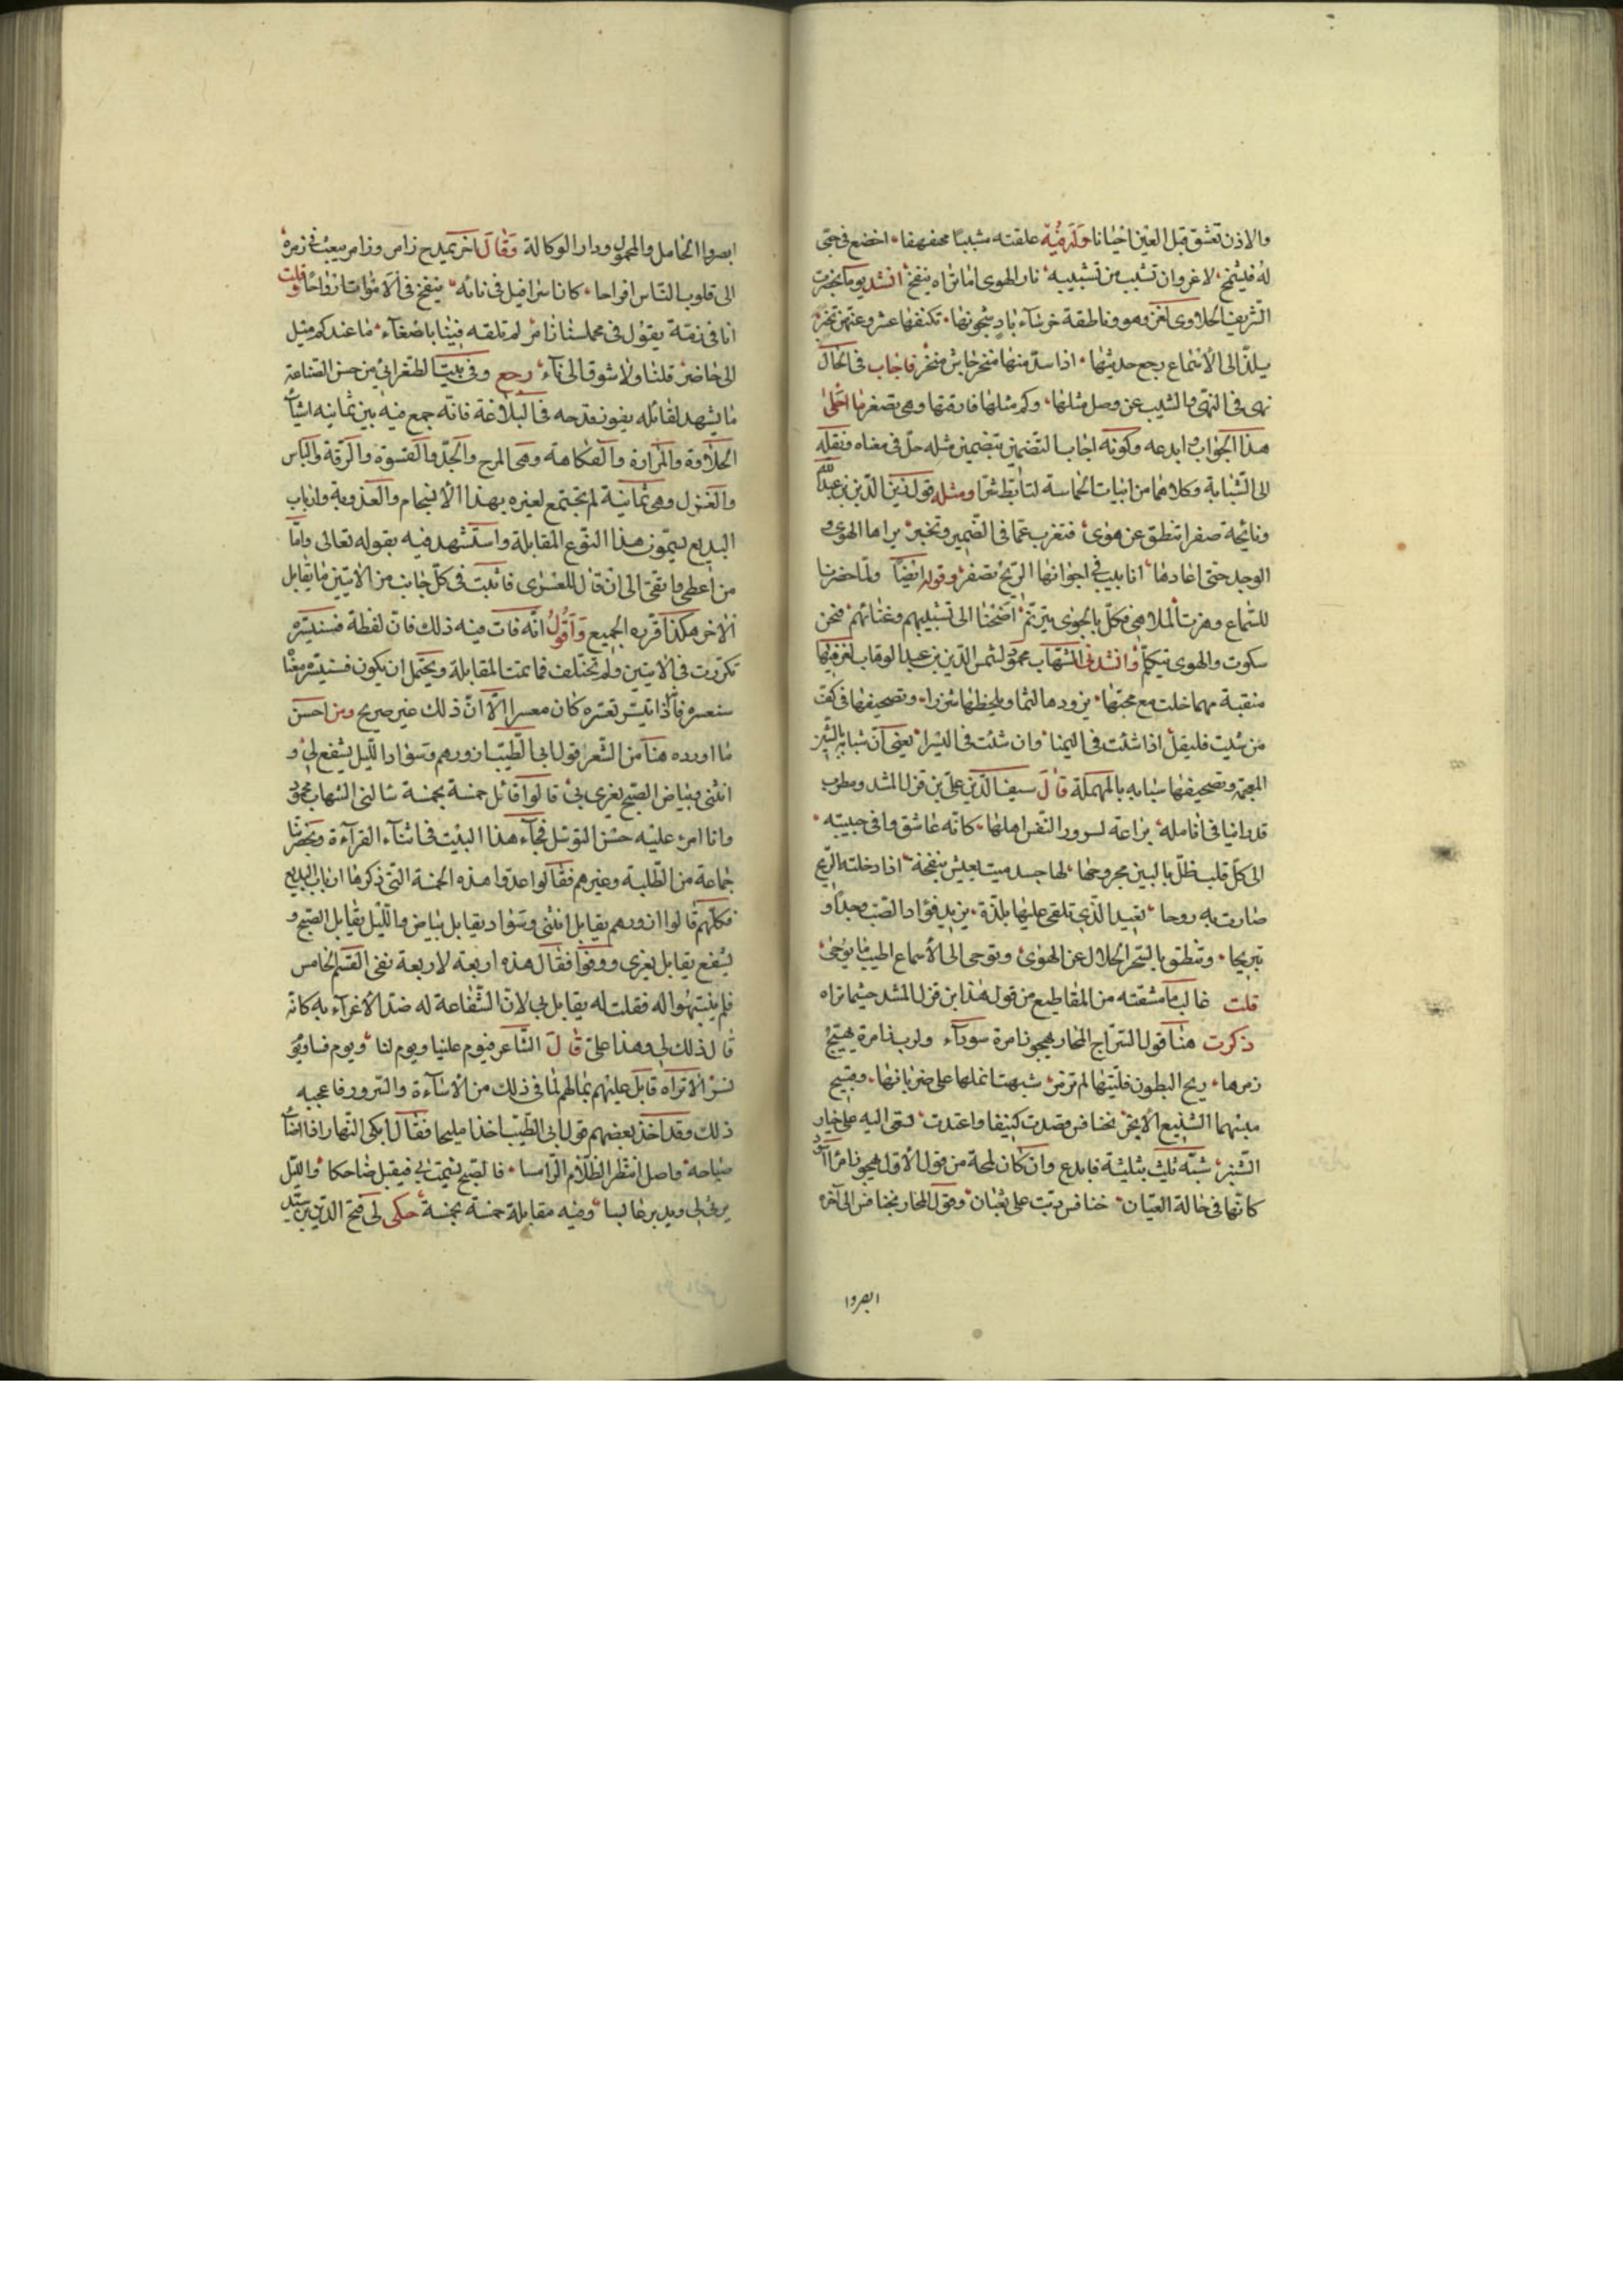 والاذن تعشق قبل العين احيانا وله فيه علقته مشببا مهفهفا اخضع في حبي
له فيشمخ لا غرو ان تشبب من تشبيبه نار الهوى اما تراه ينفخ انشد يوما بحضرت
الشريف الحلاوى لغز وهو وناطقة خرساء باد شجونها تكنفها عشر وعنهن تخبر
يلذ الى الاسماع رجع حديثها اذا سد منها منخر جاش منخر فاجاب في الحال
نهى في النهى والشيب عن وصل مثلها وكم مثلها فارقتها وهي تصفر ما احلى
هذا الجواب وابدعه وكونه اجاب التضمين بتضمين مثله حل في معناه ونقله
الى الشبابة وكلاهما من ابيات الحماسة لتابط شرا ومثله قول زين الدين بن عبد الله
ونائحة صفرا تنطق عن هوى فتعرب عما في الضمير وتخبر براها الهوى و
الوجد حتى اعادها انابيب في اجوافها الريح تصفر وقوله ايضا ولما حضرنا
للسماع وهزت الملاهى فكل بالجوى يترنم اصخنا الى تشبيبهم وغنائهم فنحن
سكوت والهوى يتكلم وانشدنى الشهاب محمود لشمس الدين بن عبد الوهاب لغز فيها
منقبة مهما خلت مع محبها يزودها لثما ويلحظها شزرا وتصحيفها في كف
من شئت فليقل اذا شئت في اليمنا وان شئت في اليسرا يعنى ان شبابه بالشين
المعجمة وتصحيفها سبابه بالمهملة قال سيف الدين على بن قزل المشد ومطرب
قد راينا في انامله يراعة لسرور النفس اهلها كانه عاشق وافى حبيبته
الى كل قلب ظل بالبين مجروحا لها جسد ميت يعيش بنفخة اذا دخلته الريح
صارت به روحا تعيد الذى تلقى عليها بلذة يزيد فؤاد الصب وجدا و
تبريحا وتنطق بالسحر الحلال عن الهوى وتوحى الى الاسماع اطيب ما يوحى
قلت غالب ما مشقته من المقاطيع من قول هذا ابن قزل المشد حيثما تراه
ذكرت هنا قول السراج المحار يهجو زامرة سوداء ولرب زامرة يهيج
زمرها ريح البطون فليتها لم تزمر شبهت انملها على ضرباتها وقبيح
مبسمها الشنيع الابخر بخنافس قصدت كنيفا واعتدت تسعى اليه على خيار
الشنبر شبه ثلث بثلثة فابدع وان كان لمحة من قول الاول يهجو زامرا اسود
كانها في حالة العيان خنافس دبت على ثعبان وقول المحار بخنافس الى آخره
ابصروا
ابصروا الخامل والمحمول ودار الوكالة وقال آخر يمدح زامر وزامر يبعث في زمره
الى قلوب الناس افراحا كان اسرافيل في نائه ينفخ في الاموات ارواحا وقلت
انا في زمقة يقول في مجلسنا زامر لم تلقه فينا باصغاء ما عندكم ميل
الى حاضر قلنا ولا شوق الى ناء رجع وفي بيت الطغرائي من حسن الصناعة
ما يشهد لقائله بفوز قدحه في البلاغة فانه جمع فيه بين ثمانيه اشياء
الحلاوة والمرارة والفكاهة وهي المرح والجد والقسوة والرقة والباس
والغزل وهي ثمانية لم تجتمع لغيره بهذا الانسجام والعذوبة وارباب
البديع يسمون هذا النوع المقابلة واستشهد فيه بقوله تعالى فاما
من اعطى واتقى الى ان قال للعسرى فاثبت في كل جانب من الايتين ما يقابل
الآخر هكذا قرره الجميع واقول انه فات فيه ذلك فان لفظة فسنيسره
تكررت في الايتين ولم تختلف فما تمت المقابلة ويحتمل ان يكون فسنيسره معنا
سنعسره فاذا تيسر تعسره كان معسرا الا ان ذلك غير صريح ومن احسن
ما اورده هنا من الشعر قول ابى الطيب ازورهم وسواد الليل يشفع لي و
انثنى وبياض الصبح يغرى بي قالوا قابل خمسة بخمسة سالنى الشهاب محمود
وانا امر عليه حسن التوسل فجاء هذا البيت في اثناء القراءة وبحضرتنا
جماعة من الطلبة وغيرهم فقالوا عدوا هذه الخمسة التي ذكرها ارباب البديع
فكلهم قالوا ازورهم يقابل انثنى وسواد يقابل بياض والليل يقابل الصبح و
يشفع يقابل يغرى ووقفوا فقال هذه اربعة لاربعة بقى القسم الخامس
فلم ينتبهوا له فقلت له يقابل بي لان الشفاعة له ضد الاغراء به كانه
قال ذلك لي وهذا على قال الشاعر فيوم علينا ويوم لنا ويوم نساء ويو
نسر الا تراه قابل عليهم بما لهم لما في ذلك من الاساءة والسرور فاعجبه
ذلك وقد اخذ بعضهم قول ابى الطيب اخذا مليحا فقال ابكى النهار اذا اضاء
صباحه واصل انتظر الظلام الدامسا فالصبح يشمت بي فيقبل ضاحكا والليل
يرثى لى ويدبر عابسا وفيه مقابلة خمسة بخمسة حكى لى فتح الدين بن سيد